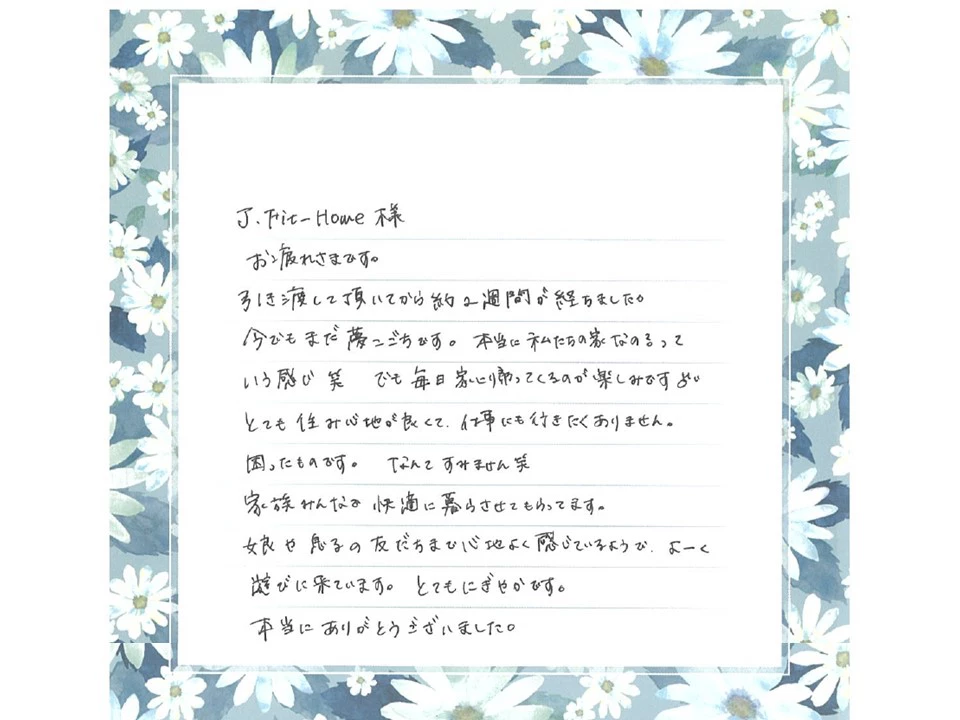 J.Fit-Home 様
お疲れさまです。
引き渡して頂いてから約2週間が経ちました。
今でもまだ夢ごこちです。 本当に私たちの家なのるって
いう感じ 笑 でも毎日家に帰ってくるのが楽しみです
とても住み心地が良くて、仕事にも行きたくありません。
困ったものです。 なんてすみません笑
家族みんな 快適に暮らさせてもらってます。
娘や息子の友だちまで心地よく感じているようで、よーく
遊びに来ています。 とてもにぎやかです。
本当にありがとうございました。